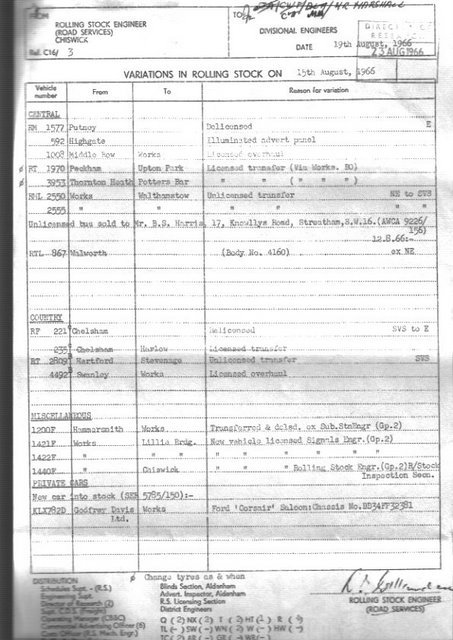 FROM ROLLING STOCK ENGINEER
(ROAD SERVICES)
CHISWICK
Ref. C16/ 3
TO
MR MARSHALL
DIVISIONAL ENGINEERS
DATE 19th August, 1966
23 AUG 1966
VARIATIONS IN ROLLING STOCK ON 15th August, 1966
Vehicle number From To Reason for variation
CENTRAL
RM 1577 Putney Delicensed E
592 Highgate Illuminated advert panel
1008 Middle Row Works Licensed overhaul
ø RT 1970 Peckham Upton Park Licensed transfer (Via Works. BO)
ø 3953 Thornton Heath Potters Bar " " ( " " " )
RML 2550 Works Walthamstow Unlicensed transfer NE to SVS
2555 " " " " " "
Unlicensed bus sold to Mr. B.S. Harris, 17, Knowllys Road, Streatham, S.W.16. (AWCA 9226/
156)
12.8.66:-
RTL 867 Walworth (Body No. 4160) ex NE
COUNTRY
RF 221 Chelsham Delicensed SVS to E
235 Chelsham Harlow Licensed transfer
RT 2809 Hertford Stevenage Unlicensed transfer SVS
4492 Swanley Works Licensed overhaul
MISCELLANEOUS
1200F Hammersmith Works Transferred & delsd. ex Sub.StnEngr (Gp.2)
1421F Works Lillie Brdg. New vehicle licensed Signals Engr.(Gp.2)
1422F " " " " " " " "
1440F " Chiswick " " " Rolling Stock Engr.(Gp.2)R/Stock
Inspection Secn.
PRIVATE CARS
New car into stock (SER 5785/150):-
KLX782D Godfrey Davis Works Ford 'Corsair' Saloon:Chassis No.BD34FP32381
Ltd.
ø Change tyres as & when
DISTRIBUTION
Schedules Supt. - (R.S.)
Engineering Supt.
Director of Research (2)
Operating Manager (CB&C)
Commercial Advertising Officer (6)
Costs Officer (R.S. Mech. Engr.)
Blinds Section, Aldenham
Advert. Inspector, Aldenham
R.S. Licensing Section
District Engineers
ROLLING STOCK ENGINEER
(ROAD SERVICES)